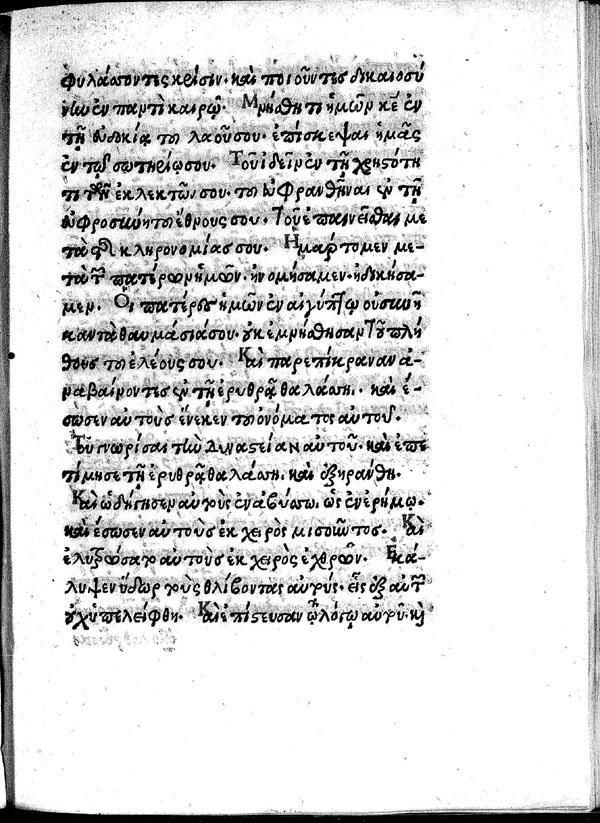 φυλάσσοντες κρίσιν· καὶ ποιοῦντες δικαιοσύ
νην ἐν παντὶ καιρῷ· Μνήσθητι ἡμῶν κε ἐν
τῇ εὐδοκίᾳ τοῦ λαοῦ σου· ἐπίσκεψαι ἡμᾶς
ἐν τῷ σωτηρίῳ σου. Τοῦ ἰδεῖν ἐν τῇ χρηστότη
τι τῶν ἐκλεκτῶν σου· τοῦ εὐφρανθῆναι ἐν τῇ
εὐφροσύνῃ τοῦ ἔθνους σου· Τοῦ ἐπαινεῖσθαι με
τὰ τῆς κληρονομίας σου. Ημάρτομεν με-
τὰ τῶν πατέρων ἡμῶν· ἠνομήσαμεν· ἠδικήσα-
μεν. Οι πατέρες ἡμῶν ἐν αἰγύπτῳ οὐ συνῆ
καν τὰ θαυμάσιά σου· οὐκ ἐμνήσθησαν τοῦ πλή
θους τοῦ ἐλέους σου. Καὶ παρεπίκραναν ἀ-
ναβαίνοντες ἐν τῇ ἐρυθρᾷ θαλάσσῃ. καὶ ἔ-
σωσεν αὐτοὺς ἕνεκεν τοῦ ὀνόματος αὐτοῦ.
Τοῦ γνωρίσαι τὴν δυναστείαν αὐτοῦ· καὶ ἐπε
τίμησε τῇ ἐρυθρᾷ θαλάσσῃ· καὶ ἐξηράνθη.
Καὶ ὡδήγησεν αὐτοὺς ἐν ἀβύσσῳ· ὡς ἐν ἐρήμῳ·
καὶ ἔσωσεν αὐτοὺς ἐκ χειρὸς μισοῦντος. Καὶ
ἐλυτρώσατο αὐτοὺς ἐκ χειρὸς ἐχθρῶν. Εκά-
λυψεν ὕδωρ τοὺς θλίβοντας αὐτούς· εἷς ἐξ αὐτῶν
οὐχ ὑπελείφθη. Καὶ ἐπίστευσαν τῷ λόγῳ αὐτοῦ· κὶ